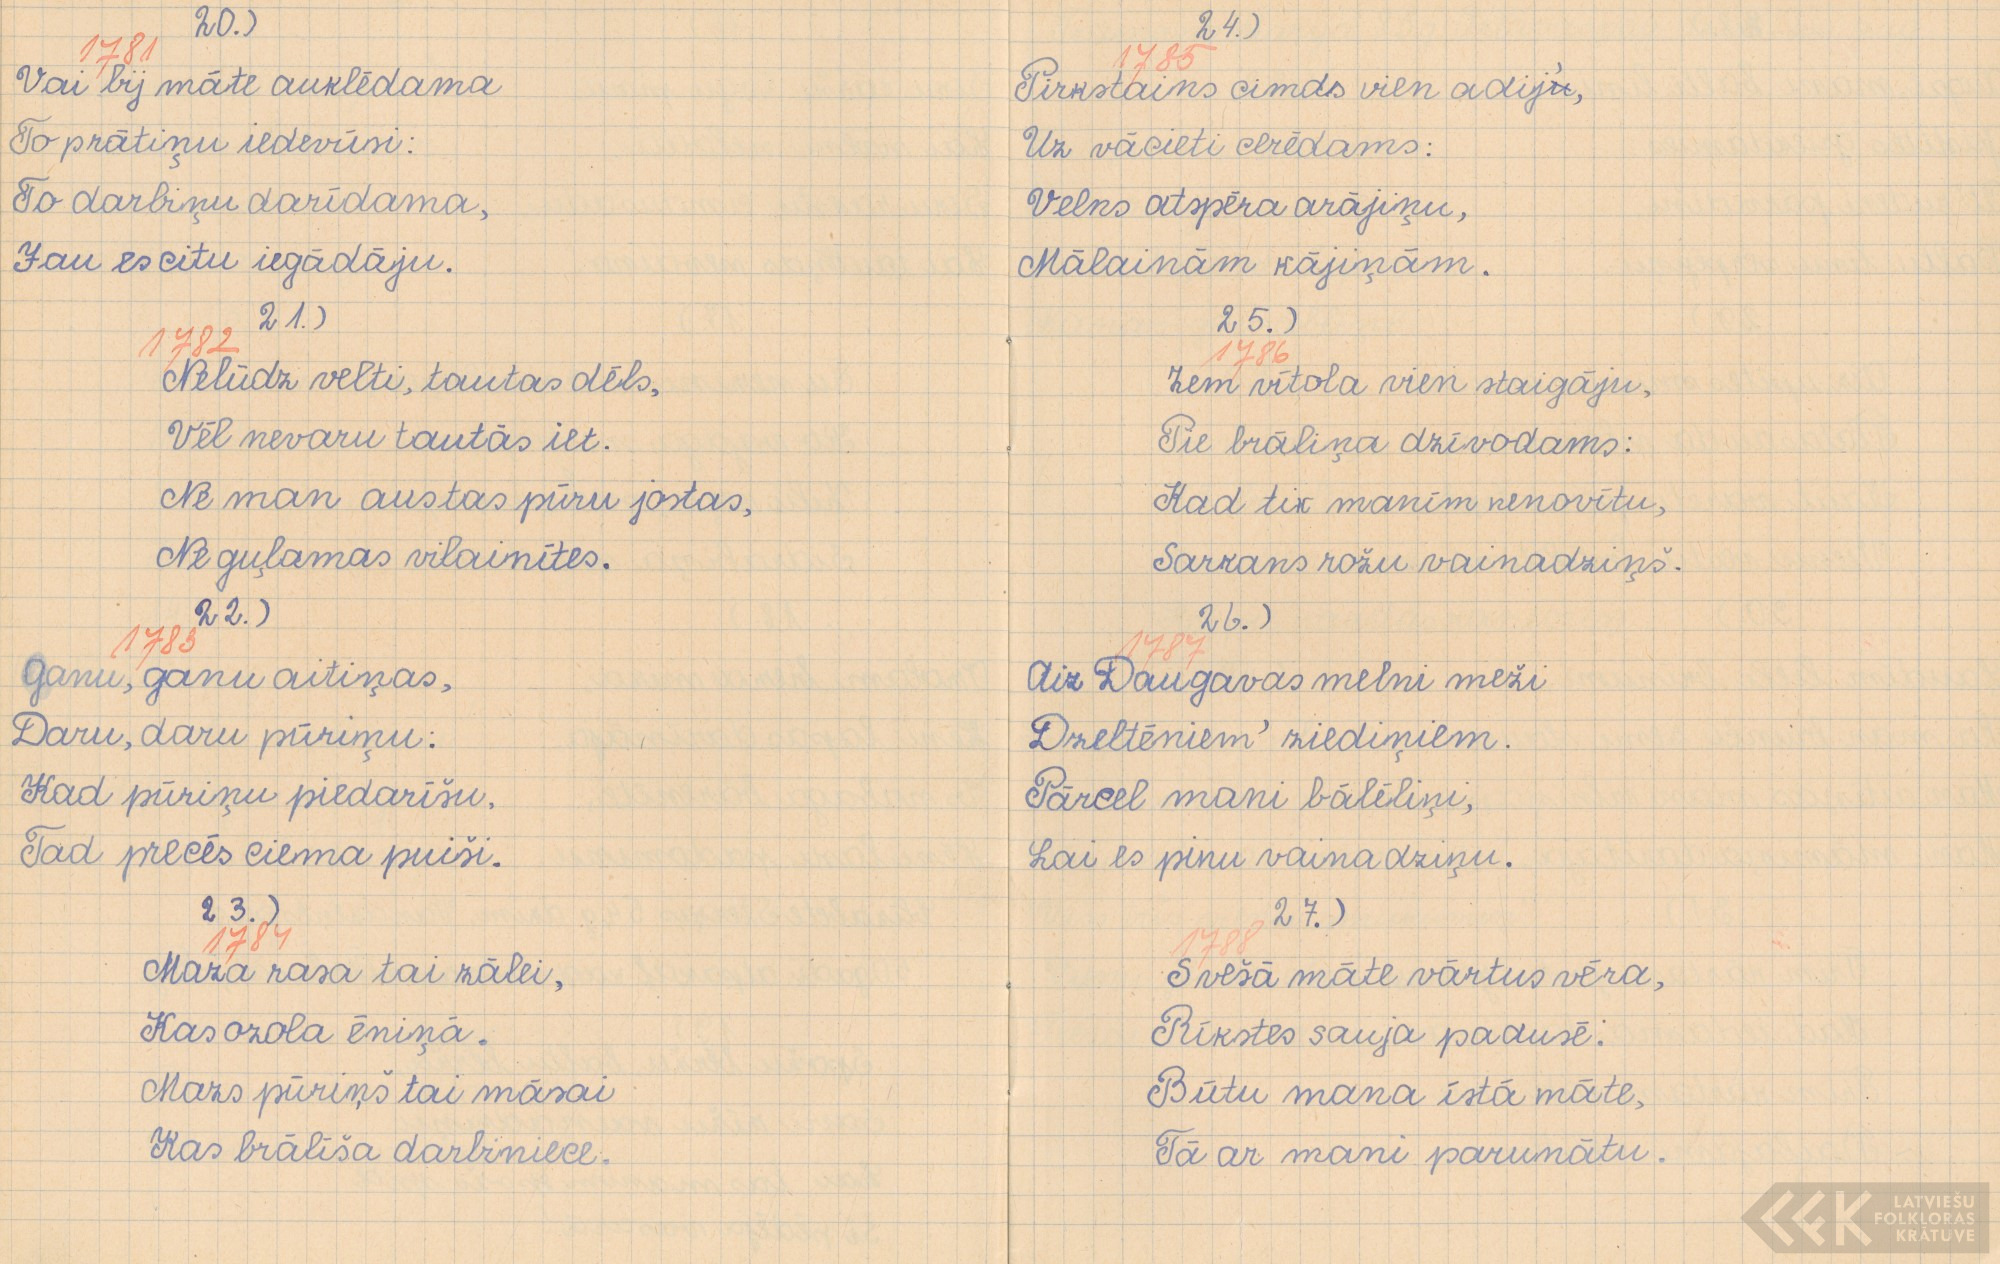 20.)
1781
Vai bij māte auklēdama
To prātiņu iedevūsi:
To darbiņu darīdama,
Jau es citu iegādāju.
21.)
1782
Nelūdz velti, tautas dēls,
Vēl nevaru tautās iet.
Ne man austas pūru jostas,
Ne guļamas vilainītes.
22.)
1783
Ganu, ganu aitiņas,
Daru, daru pūriņu:
Kad pūriņu piedarīšu,
Tad precēs ciema puiši.
23.)
1784
Maza rasa tai zālei,
Kas ozola ēniņā.
Mazs pūriņš tai māsai
Kas brālīša darbiniece.
24.)
1785
Pirkstains cimds vien adij',
Uz vācieti cerēdams:
Velns atspēra arājiņu,
Mālainām kājiņām.
25.)
1786
Zem vītola vien staigāju,
Pie brāliņa dzīvodams:
Kad tik manīm nenovītu,
Sarkans rožu vainadziņš.
26.)
1787
Aiz Daugavas melni meži
Dzeltēniem' ziediņiem.
Pārcel mani bālēliņi,
Lai es pinu vainadziņu.
27.)
1788
Svešā māte vārtus vēra,
Rīkstes sauja padusē:
Būtu mana īstā māte,
Tā ar mani parunātu.
LATVIEŠU
FOLKLORAS
KRĀTUVE